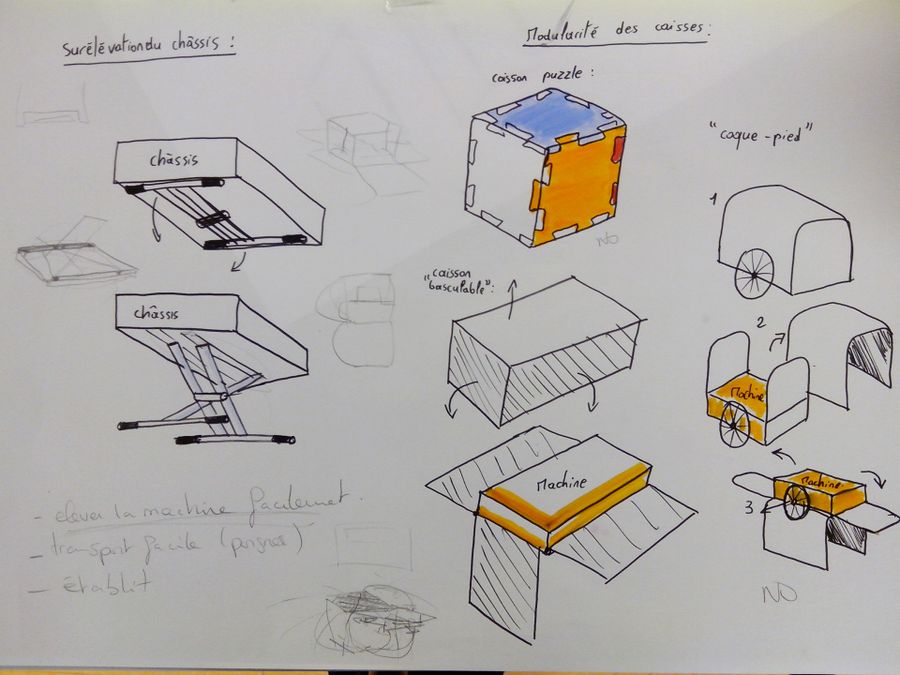 Surélévation du châssis :
châssis
châssis
- élever la machine facilemnet.
- transport facile (poignée)
- établit
Modularité des caisses:
caisson puzzle :
NO
"caisson
basculable":
Machine
"coque-pied"
1
2
Machine
3
Machine
NO